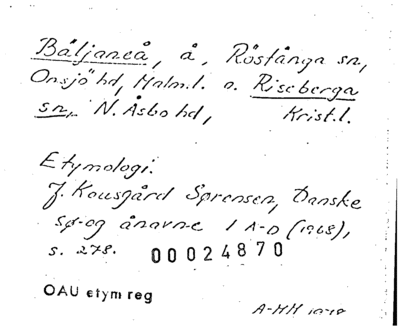 Båljaneå, å, Röstånga sn,
Onsjö hd, Malm.l. o. Riseberga
sn, N. Åsbo hd, Krist.l.
Etymologi.
J. Kousgård Sørensen, Danske
sø- og ånavne 1 A-D (1968),
s. 278. 00024870
OAU etym reg
A-MH